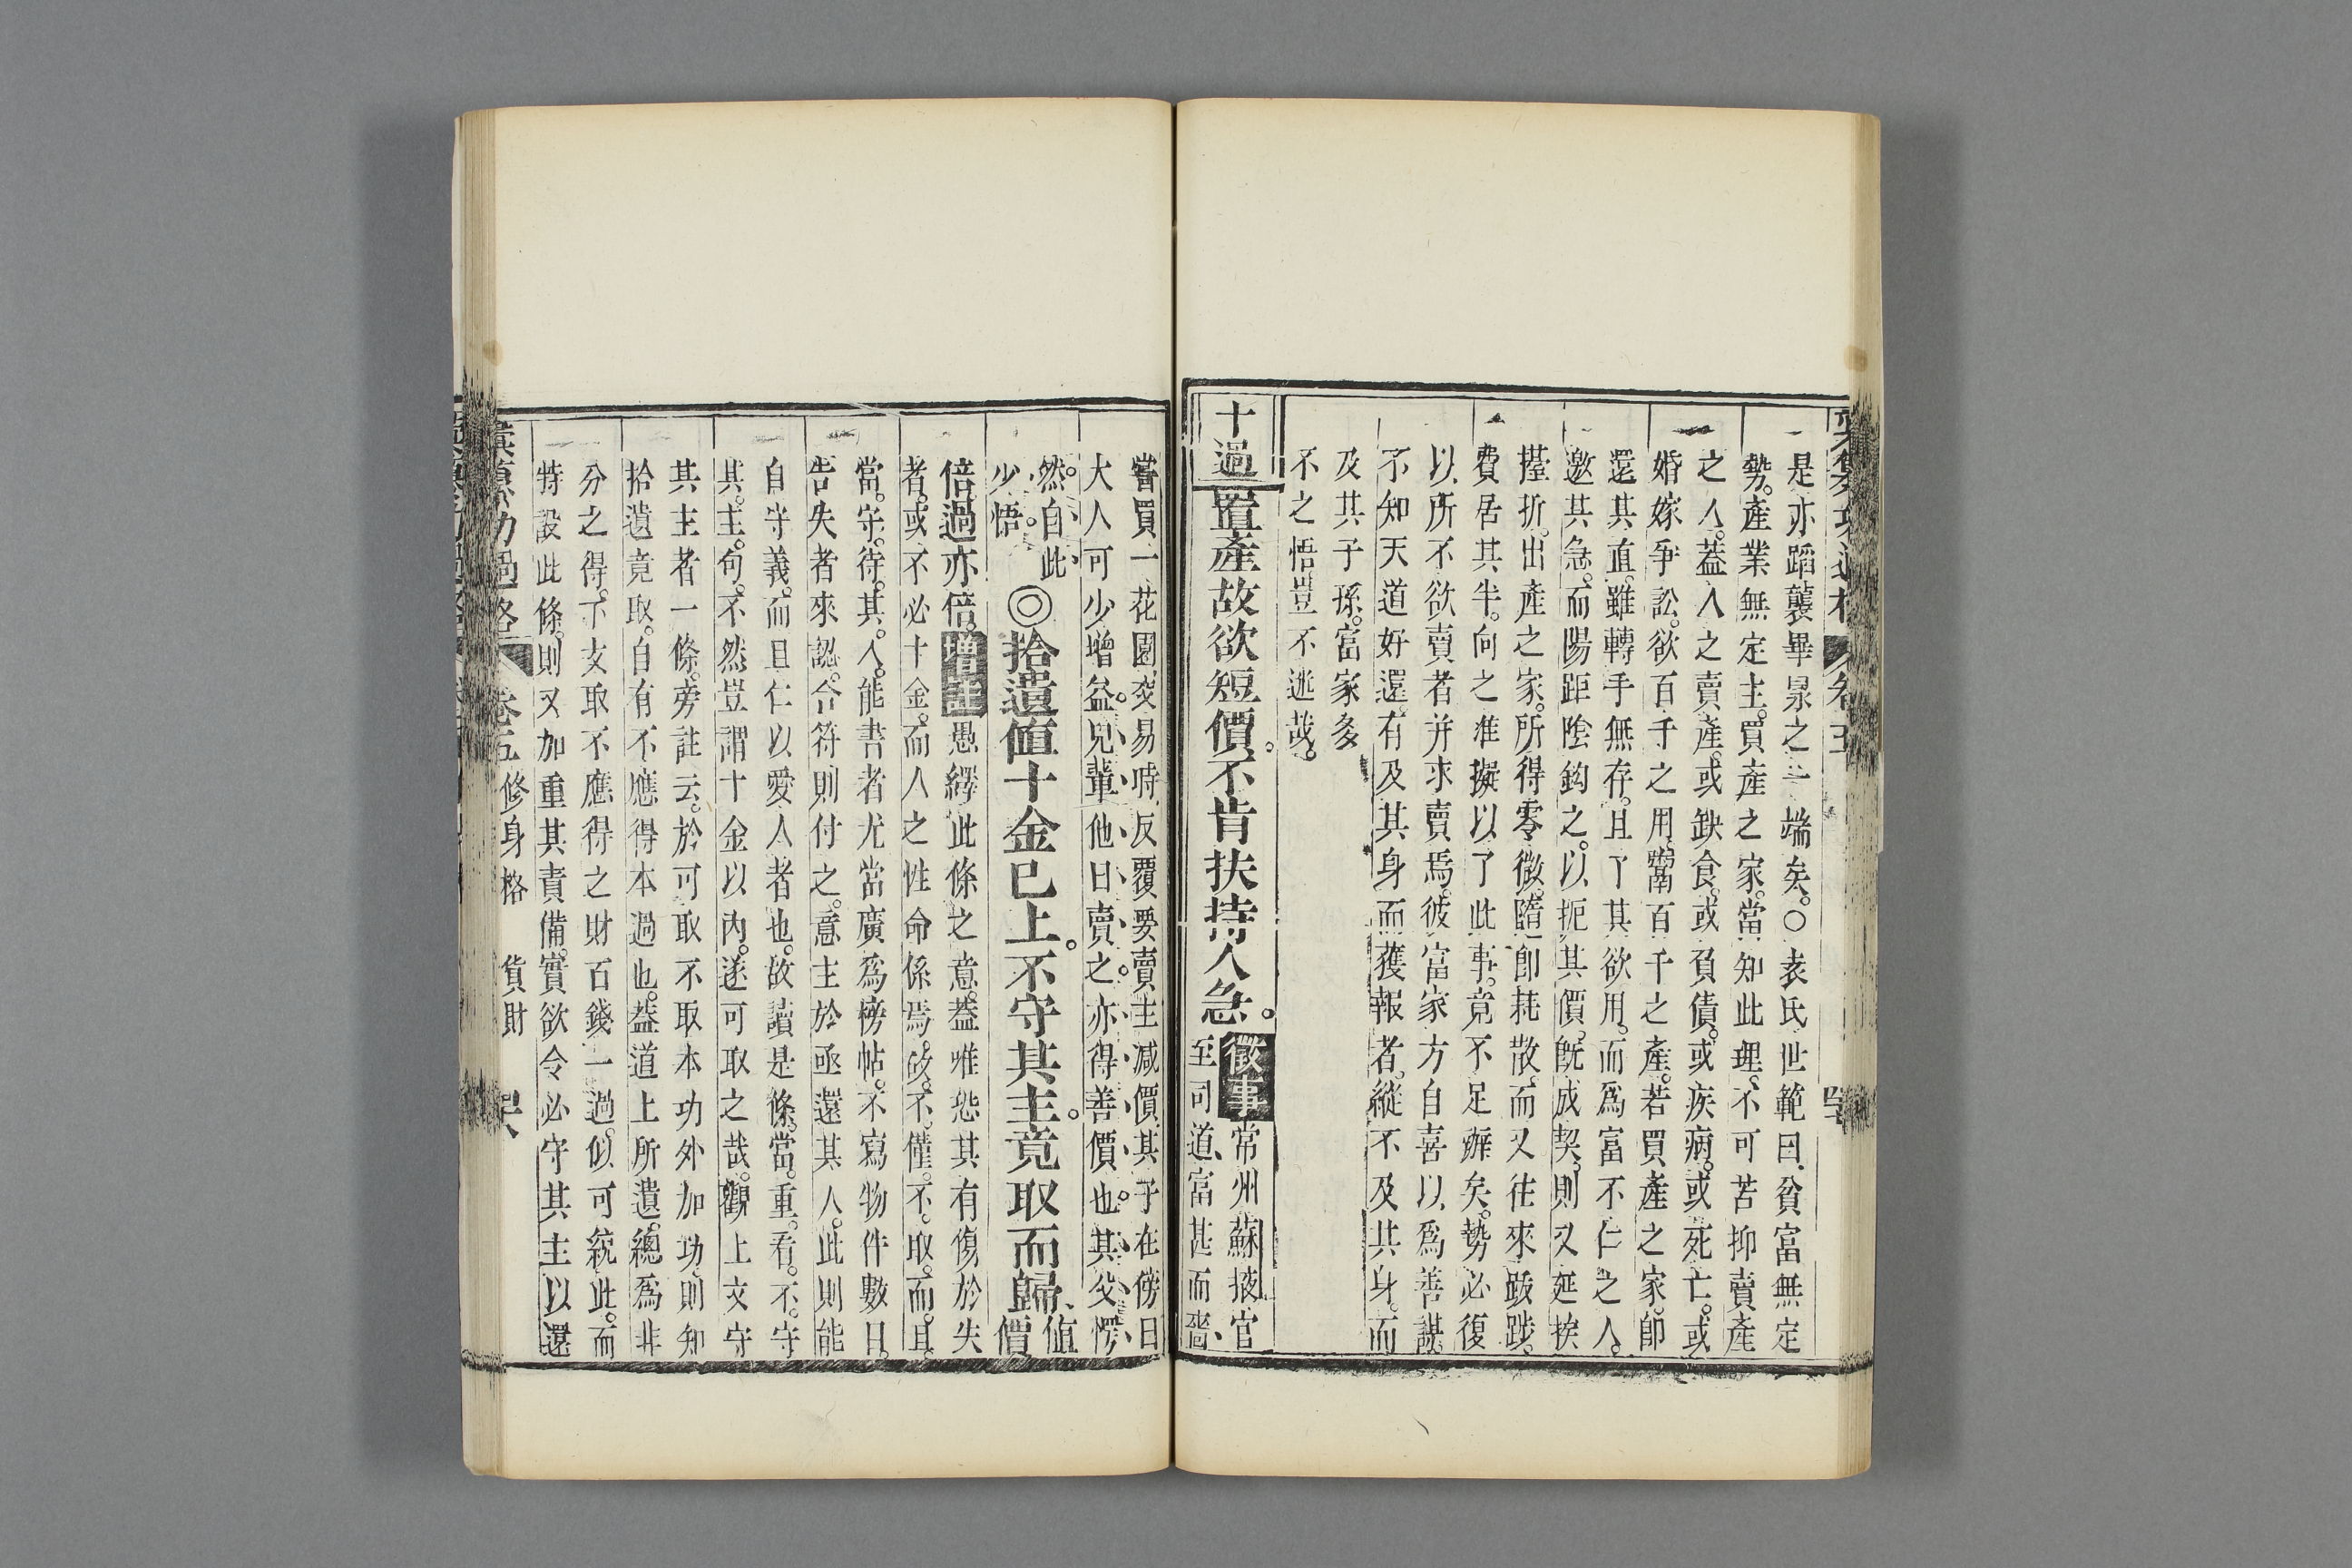 是亦蹈襲畢杲之一端矣。○袁氏世範曰貧富無定
勢。產業無定主。買產之家。當知此理。不可苦抑賣產
之人。蓋人之賣產。或缺食。或負債。或疾病。或死亡。或
婚嫁爭訟。欲百千之用。鬻百千之產。若買產之家。即
還其直。雖轉手無存。且了其欲用。而爲富不仁之人。
邀其急。而陽距陰鈎之。以扼其價。旣成契。則又延挨
掯折。出產之家。所得零微。隨即耗散。而又往來跋踄。
費居其半。向之准擬以了此事。竟不足辦矣。勢必復
以所不欲賣者并求賣焉。彼富家方自喜以爲善謀。
不知天道好還。有及其身而獲報者。縱不及其身。而
及其子孫。富家多
不之悟。豈不迷哉。
十過 置產故欲短價。不肯扶持人急。 徵事 常州蘇掖官
至司道、富甚而嗇、
嘗買一花園交易時反覆要賣主減價其子在傍曰
大人可少增益。兒輩他日賣之。亦得善價也。其父愕
然。自此
少悟。
◎拾遺値十金已上。不守其主。竟取而歸、値
價
倍過亦倍。 增註 愚繹此條之意。蓋唯恐其有傷於失
者。或不必十金。而人之性命係焉。故。不。僅。不。取。而。且。
當。守。待。其。人。能書者尤當廣爲榜帖。不寫物件數目。
告失者來認。合符則付之。意主於亟還其人。此則能
自守義。而且仁以愛人者也。故讀是條。當。重。看。不。守
其。主。句。不然豈謂十金以內。遂可取之哉。觀上文守
其主者一條。旁註云。於可取不取本功外加功。則知
拾遺竟取。自有不應得本過也。蓋道上所遺。總爲非
分之得。下文取不應得之財百錢一過。似可統此。而
特設此條。則又加重其責備。實欲令必守其主以還
彙纂功過格 卷五 修身格 貨財 四十八